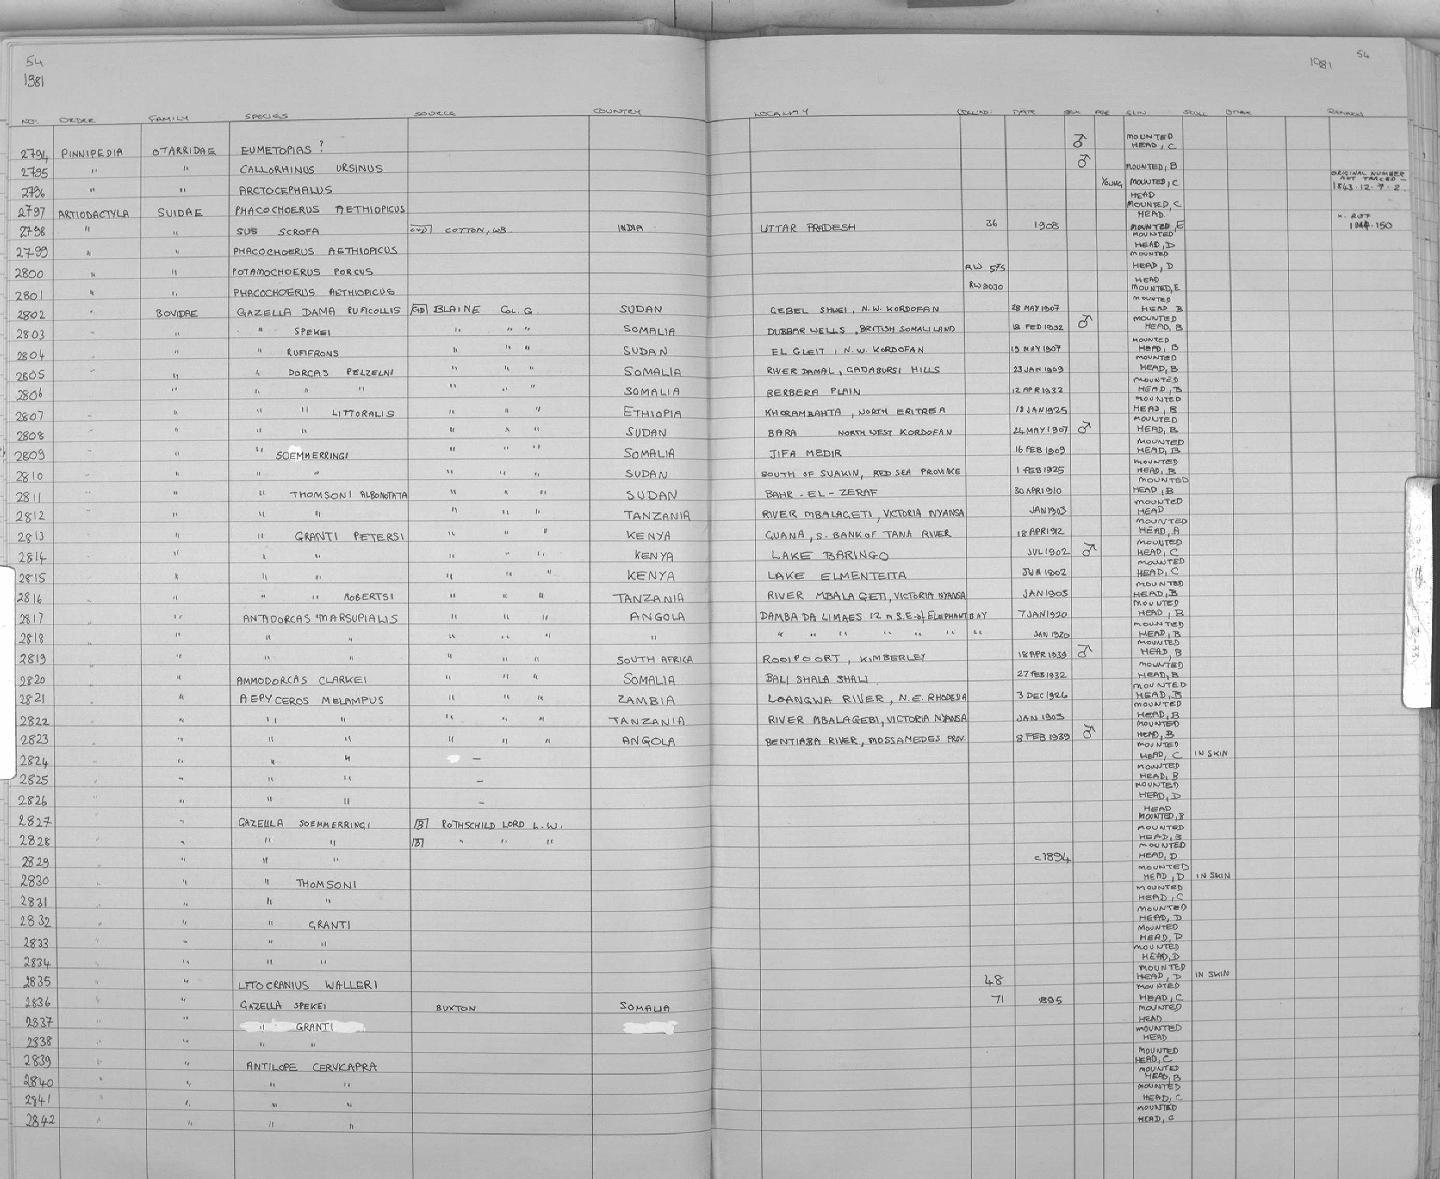 54 54
1981 1981
NO. ORDER FAMILY SPECIES SOURCE COUNTRY LOCALITY DATE SEX AGE SKIN SKULL OTHER REMARKS
2794 PINNIPEDIA OTARRIDAE EUMETOPIAS ? ♂ MOUNTED HEAD, C
2795 " " CALLORHINUS URSINUS ♂ MOUNTED, B
2796 " " ARCTOCEPHALUS YOUNG MOUNTED, C ORIGINAL NUMBER NOT TRACED - 1843.12.7.2.
2797 ARTIODACTYLA SUIDAE PHACOCHOERUS AETHIOPICUS HEAD MOUNTED, C
2798 " " SUS SCROFA COTTON, WB INDIA UTTAR PRADESH 36 1908 HEAD MOUNTED, E
2799 " " PHACOCHOERUS AETHIOPICUS MOUNTED HEAD, D
2800 " " POTAMOCHOERUS PORCUS RW 575 MOUNTED HEAD, D
2801 " " PHACOCHOERUS AETHIOPICUS RW 3030 HEAD MOUNTED, E
2802 BOVIDAE GAZELLA DAMA RUFICOLLIS BLAINE COL. G SUDAN N.W. KORDOFAN 28 MAY 1907 MOUNTED HEAD B
2803 " " SPEKEI " " " SOMALIA DUBBAR WELLS, BRITISH SOMALILAND 18 FEB 1932 ♂ MOUNTED HEAD, B
2804 " " RUFIFRONS " " " SUDAN EL GLEIT, N.W. KORDOFAN 19 MAY 1907 MOUNTED HEAD, B
2805 " " DORCAS PELZELNI " " " SOMALIA RIVER DAMAL, GADABURSI HILLS 23 JAN 1909 MOUNTED HEAD, B
2806 " " " " " " " SOMALIA BERBERA PLAIN 12 APR 1932 MOUNTED HEAD, B
2807 " " " LITTORALIS " " " ETHIOPIA KHORAMBAHTA, NORTH ERITREA 19 JAN 1925 MOUNTED HEAD, B
2808 " " " " " " SUDAN BARA NORTH WEST KORDOFAN 24 MAY 1907 ♂ MOUNTED HEAD, B
2809 " " SOEMMERRINGI " " " SOMALIA JIFA MEDIR 16 FEB 1909 MOUNTED HEAD, B
2810 " " " " " " SUDAN SOUTH OF SUAKIN, RED SEA PROVINCE 1 FEB 1925 MOUNTED HEAD, B
2811 " " THOMSONI ALBONOTATA " " " SUDAN BAHR-EL-ZERAF 30 APR 1910 MOUNTED HEAD, B
2812 " " " " " " TANZANIA RIVER MBALAGETI, VICTORIA NYANSA JAN 1903 MOUNTED HEAD
2813 " " GRANTI PETERSI " " " KENYA GUANA, S. BANK OF TANA RIVER 18 APR 1912 MOUNTED HEAD, A
2814 " " " " " " KENYA LAKE BARINGO JUL 1902 ♂ MOUNTED HEAD, C
2815 " " " " " " KENYA LAKE ELMENTEITA JUN 1902 MOUNTED HEAD, C
2816 " " " ROBERTSI " " " TANZANIA RIVER MBALAGETI, VICTORIA NYANSA JAN 1903 MOUNTED HEAD, B
2817 " ANTADORCAS MARSUPIALIS " " " ANGOLA DAMBA DA LIMAES 12 m S.E. of ELEPHANT BAY 7 JAN 1920 MOUNTED HEAD, B
2818 " " " " " " " " " " " " " " " JAN 1920 MOUNTED HEAD, B
2819 " " " " " " SOUTH AFRICA ROOIPOORT, KIMBERLEY 18 APR 1939 ♂ MOUNTED HEAD, B
2820 " AMMODORCAS CLARKEI " " " SOMALIA BALI SHALA SHALI 27 FEB 1932 MOUNTED HEAD, B
2821 " AEPYCEROS MELAMPUS " " " ZAMBIA LOANGWA RIVER, N.E. RHODESIA 3 DEC 1926 MOUNTED HEAD, B
2822 " " " " " " TANZANIA RIVER MBALAGEBI, VICTORIA NYANSA JAN 1903 MOUNTED HEAD, B
2823 " " " " " " ANGOLA BENTIABA RIVER, MOSSAMEDES PROV. 8 FEB 1939 ♂ MOUNTED HEAD, B
2824 " " " " - MOUNTED HEAD, C IN SKIN
2825 " " " " - MOUNTED HEAD, B
2826 " " " " - MOUNTED HEAD, D
2827 " " GAZELLA SOEMMERRINGI [B] ROTHSCHILD LORD L.W. HEAD MOUNTED, B
2828 " " " " [B] " " " MOUNTED HEAD, B
2829 " " " " c1894 MOUNTED HEAD, D
2830 " " " THOMSONI MOUNTED HEAD, D IN SKIN
2831 " " " " MOUNTED HEAD, C
2832 " " " GRANTI MOUNTED HEAD, D
2833 " " " " MOUNTED HEAD, D
2834 " " " " MOUNTED HEAD, D
2835 " " LITOCRANIUS WALLERI 48 MOUNTED HEAD, D IN SKIN
2836 " " GAZELLA SPEKEI BUXTON SOMALIA 71 1895 MOUNTED HEAD, C
2837 " " " GRANTI MOUNTED HEAD
2838 " " " " MOUNTED HEAD
2839 " " ANTILOPE CERVICAPRA MOUNTED HEAD, C
2840 " " " " MOUNTED HEAD, B
2841 " " " " MOUNTED HEAD, C
2842 " " " " MOUNTED HEAD, C